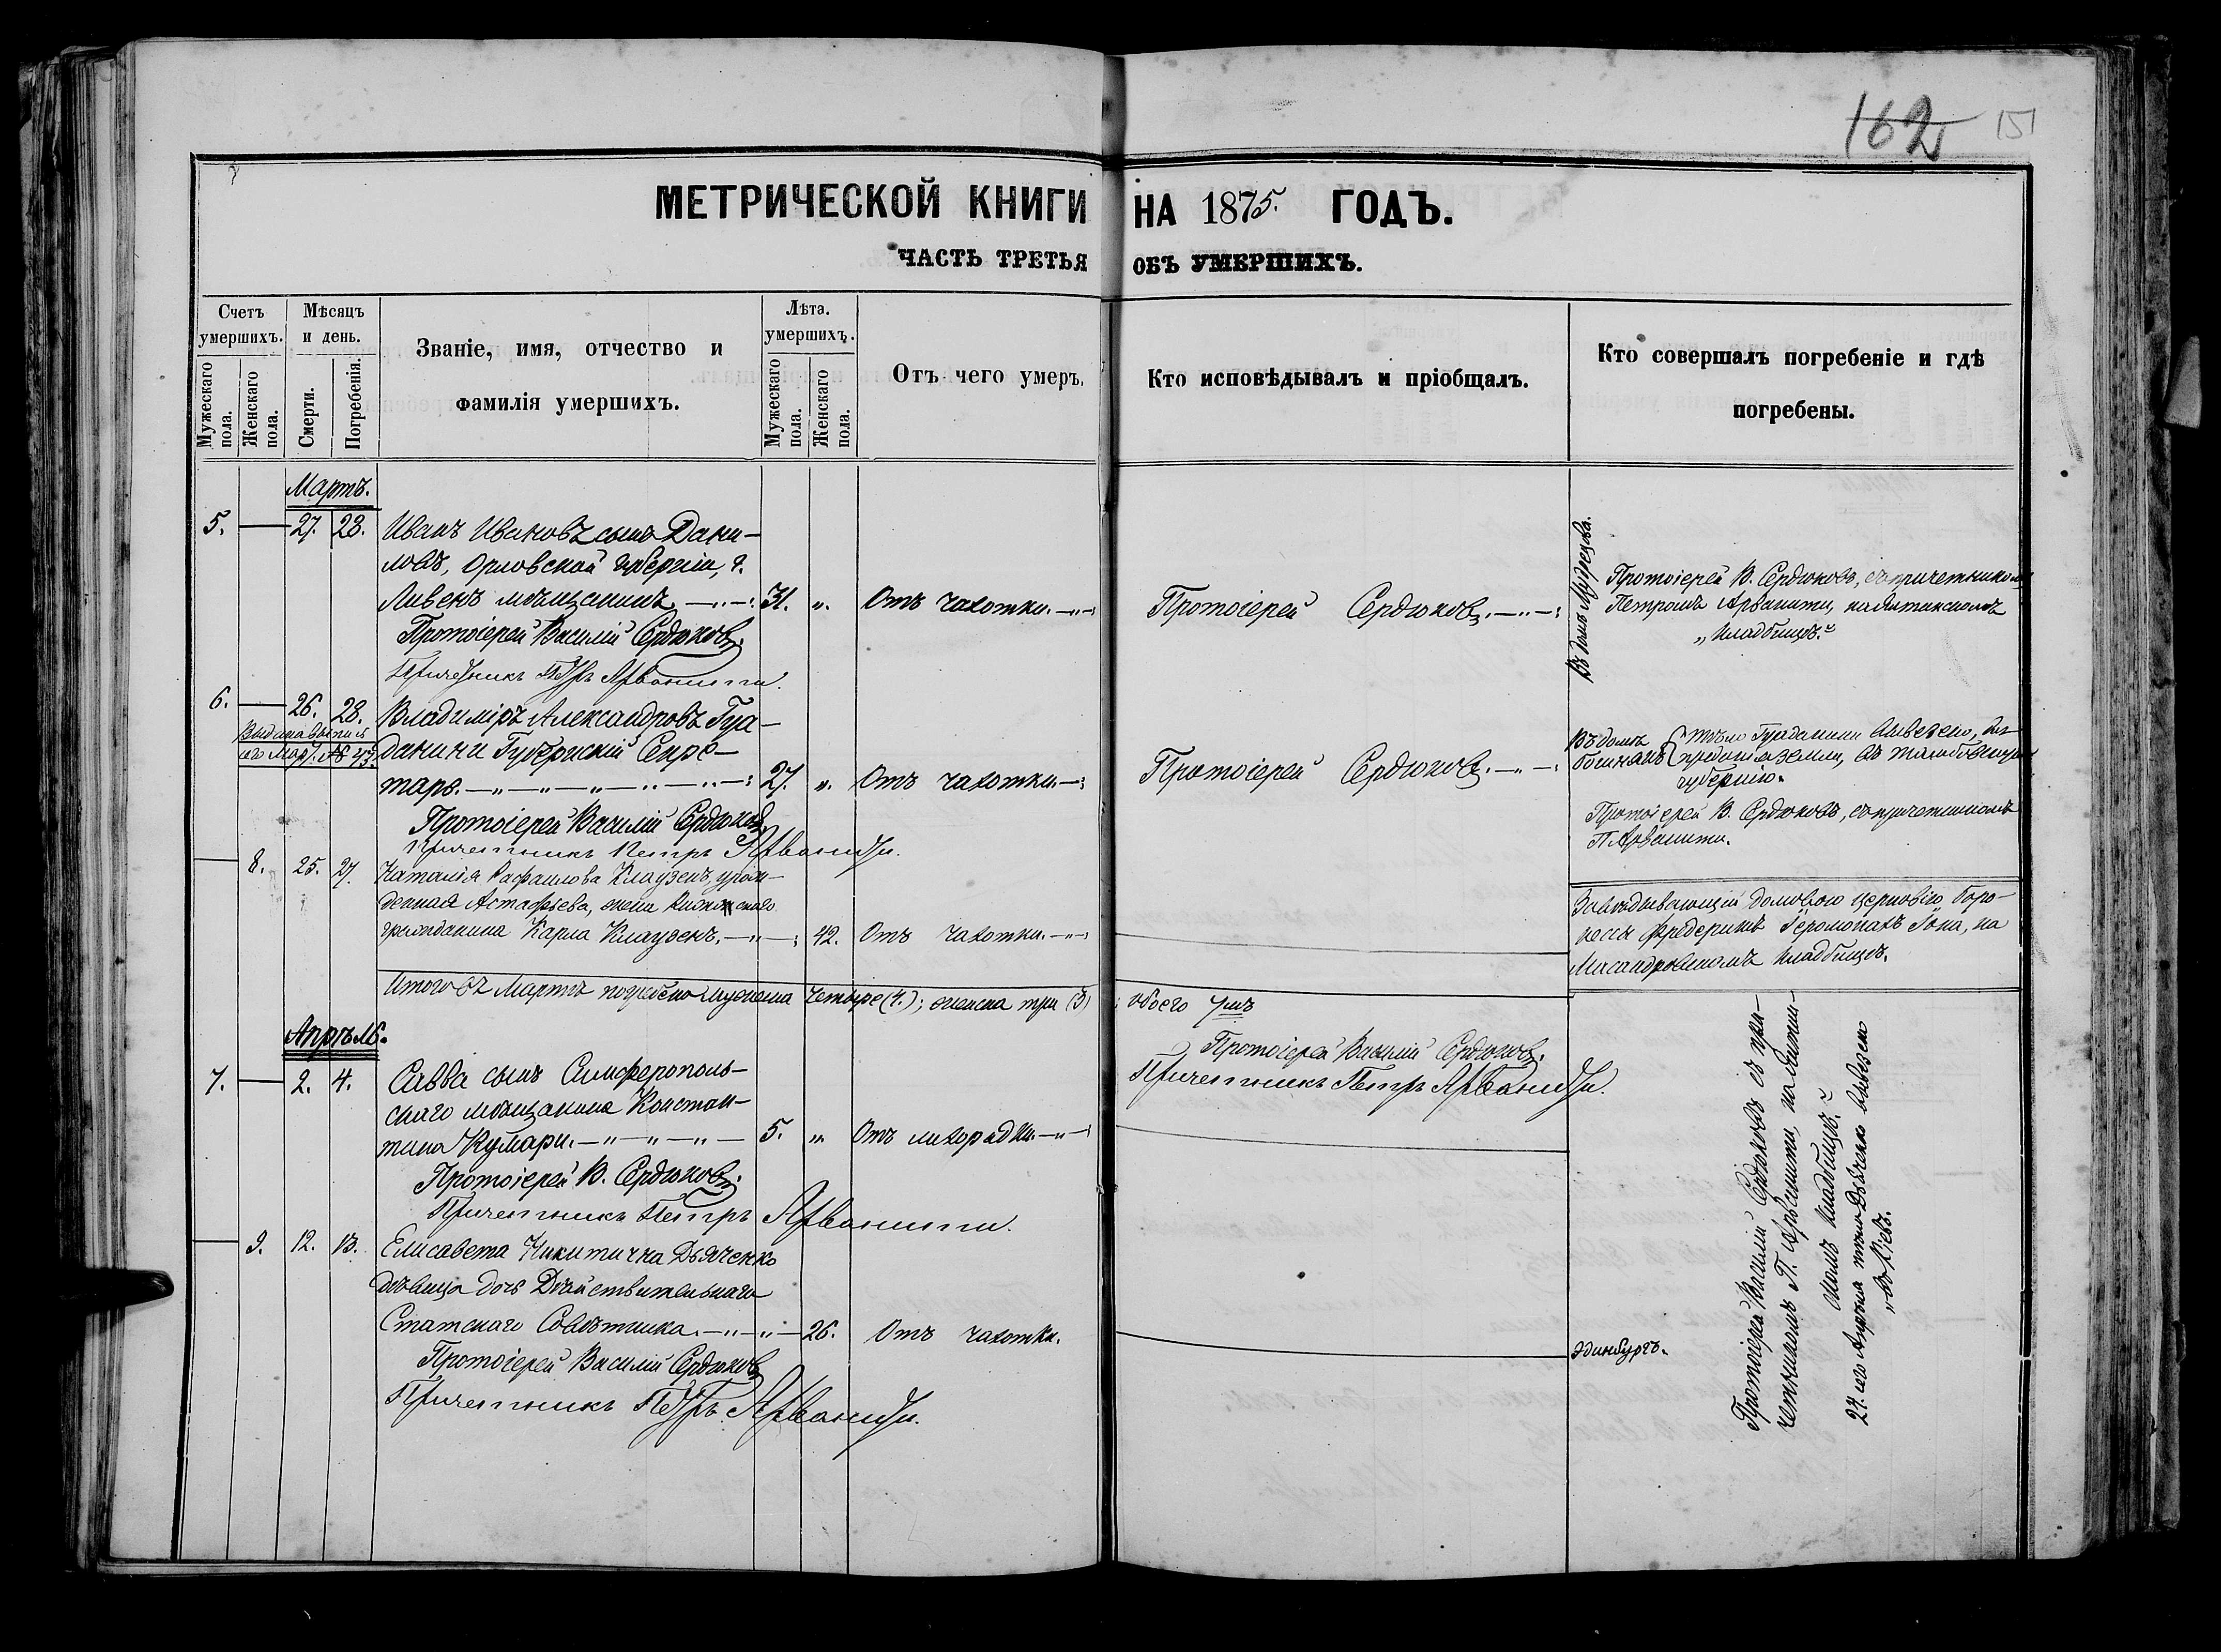 162 151
МЕТРИЧЕСКОЙ КНИГИ НА 1875. ГОДЪ.
ЧАСТЬ ТРЕТЬЯ ОБЪ УМЕРШИХЪ.
Счетъ умершихъ.
Мужескаго пола.
Женскаго пола.
Мѣсяцъ и день.
Смерти.
Погребенія.
Званіе, имя, отчество и
фамилія умершихъ.
Лѣта. умершихъ.
Мужескаго пола.
Женскаго пола.
Отъ чего умеръ.
Кто исповѣдывалъ и пріобщалъ.
Кто совершалъ погребеніе и гдѣ
погребены.
Мартъ.
5. — 27. 28. Иванъ Ивановъ сынъ Дани-
ловъ, Орловской губерніи, г.
Ливенъ мѣщанинъ 31. „ Отъ чахотки.
Протоіерей Василій Сердюковъ.
Причетникъ Петръ Арванити.
Протоіерей Сердюковъ.
Въ домѣ
Протоіерей В. Сердюковъ, съ причетникомъ
Петромъ Арванити, на Аутскомъ
„кладбищѣ."
6. — 26. 28. Владиміръ Александровъ Гуа-
Выдана выпись
сего Мар. № 43.
данини Губернскій Секре-
тарь. 27. „ Отъ чахотки.
Протоіерей Василій Сердюковъ
Причетникъ Петръ Арванити.
Протоіерей Сердюковъ.
Въ домѣ
тѣло Гуаданини вывезено, для
преданія землѣ, въ Тамбовскую
губернію.
Протоіерей В. Сердюковъ, съ причетникомъ
П. Арванити.
— 8. 25. 27. Наталія Рафаилова Клаузенъ, урож-
денная Астафьева, жена
гражданина Карла Клаузенъ. 42. Отъ чахотки.
Завѣдывающій домовою церковію Баро-
нессы Фредериксъ Іеромонахъ Іона, на
Масандровскомъ кладбищѣ.
Итого въ Мартѣ погребено мужеска четыре (4.); женска три (3)
обоего 7мь
Протоіерей Василій Сердюковъ.
Причетникъ Петръ Арванити.
Апрѣль.
7. — 2. 4. Савва сынъ Симферополь-
скаго мѣщанина Констан-
тина Кумари. 5. „ Отъ лихорадки.
Протоіерей В. Сердюковъ.
Причетникъ Петръ Арванити.
— 9. 12. 13. Елисавета Никитична Дьяченко
дѣвица дочь Дѣйствительнаго
Статскаго Совѣтника. 26. Отъ чахотки.
Протоіерей Василій Сердюковъ
Причетникъ Петръ Арванити.
Эдинбургъ.
Протоіерей Василій Сердюковъ съ при-
четникомъ П. Арванити, на
кладбищѣ."
27. сего Апрѣля тѣло Дьяченко вывезено
„въ Кіевъ.